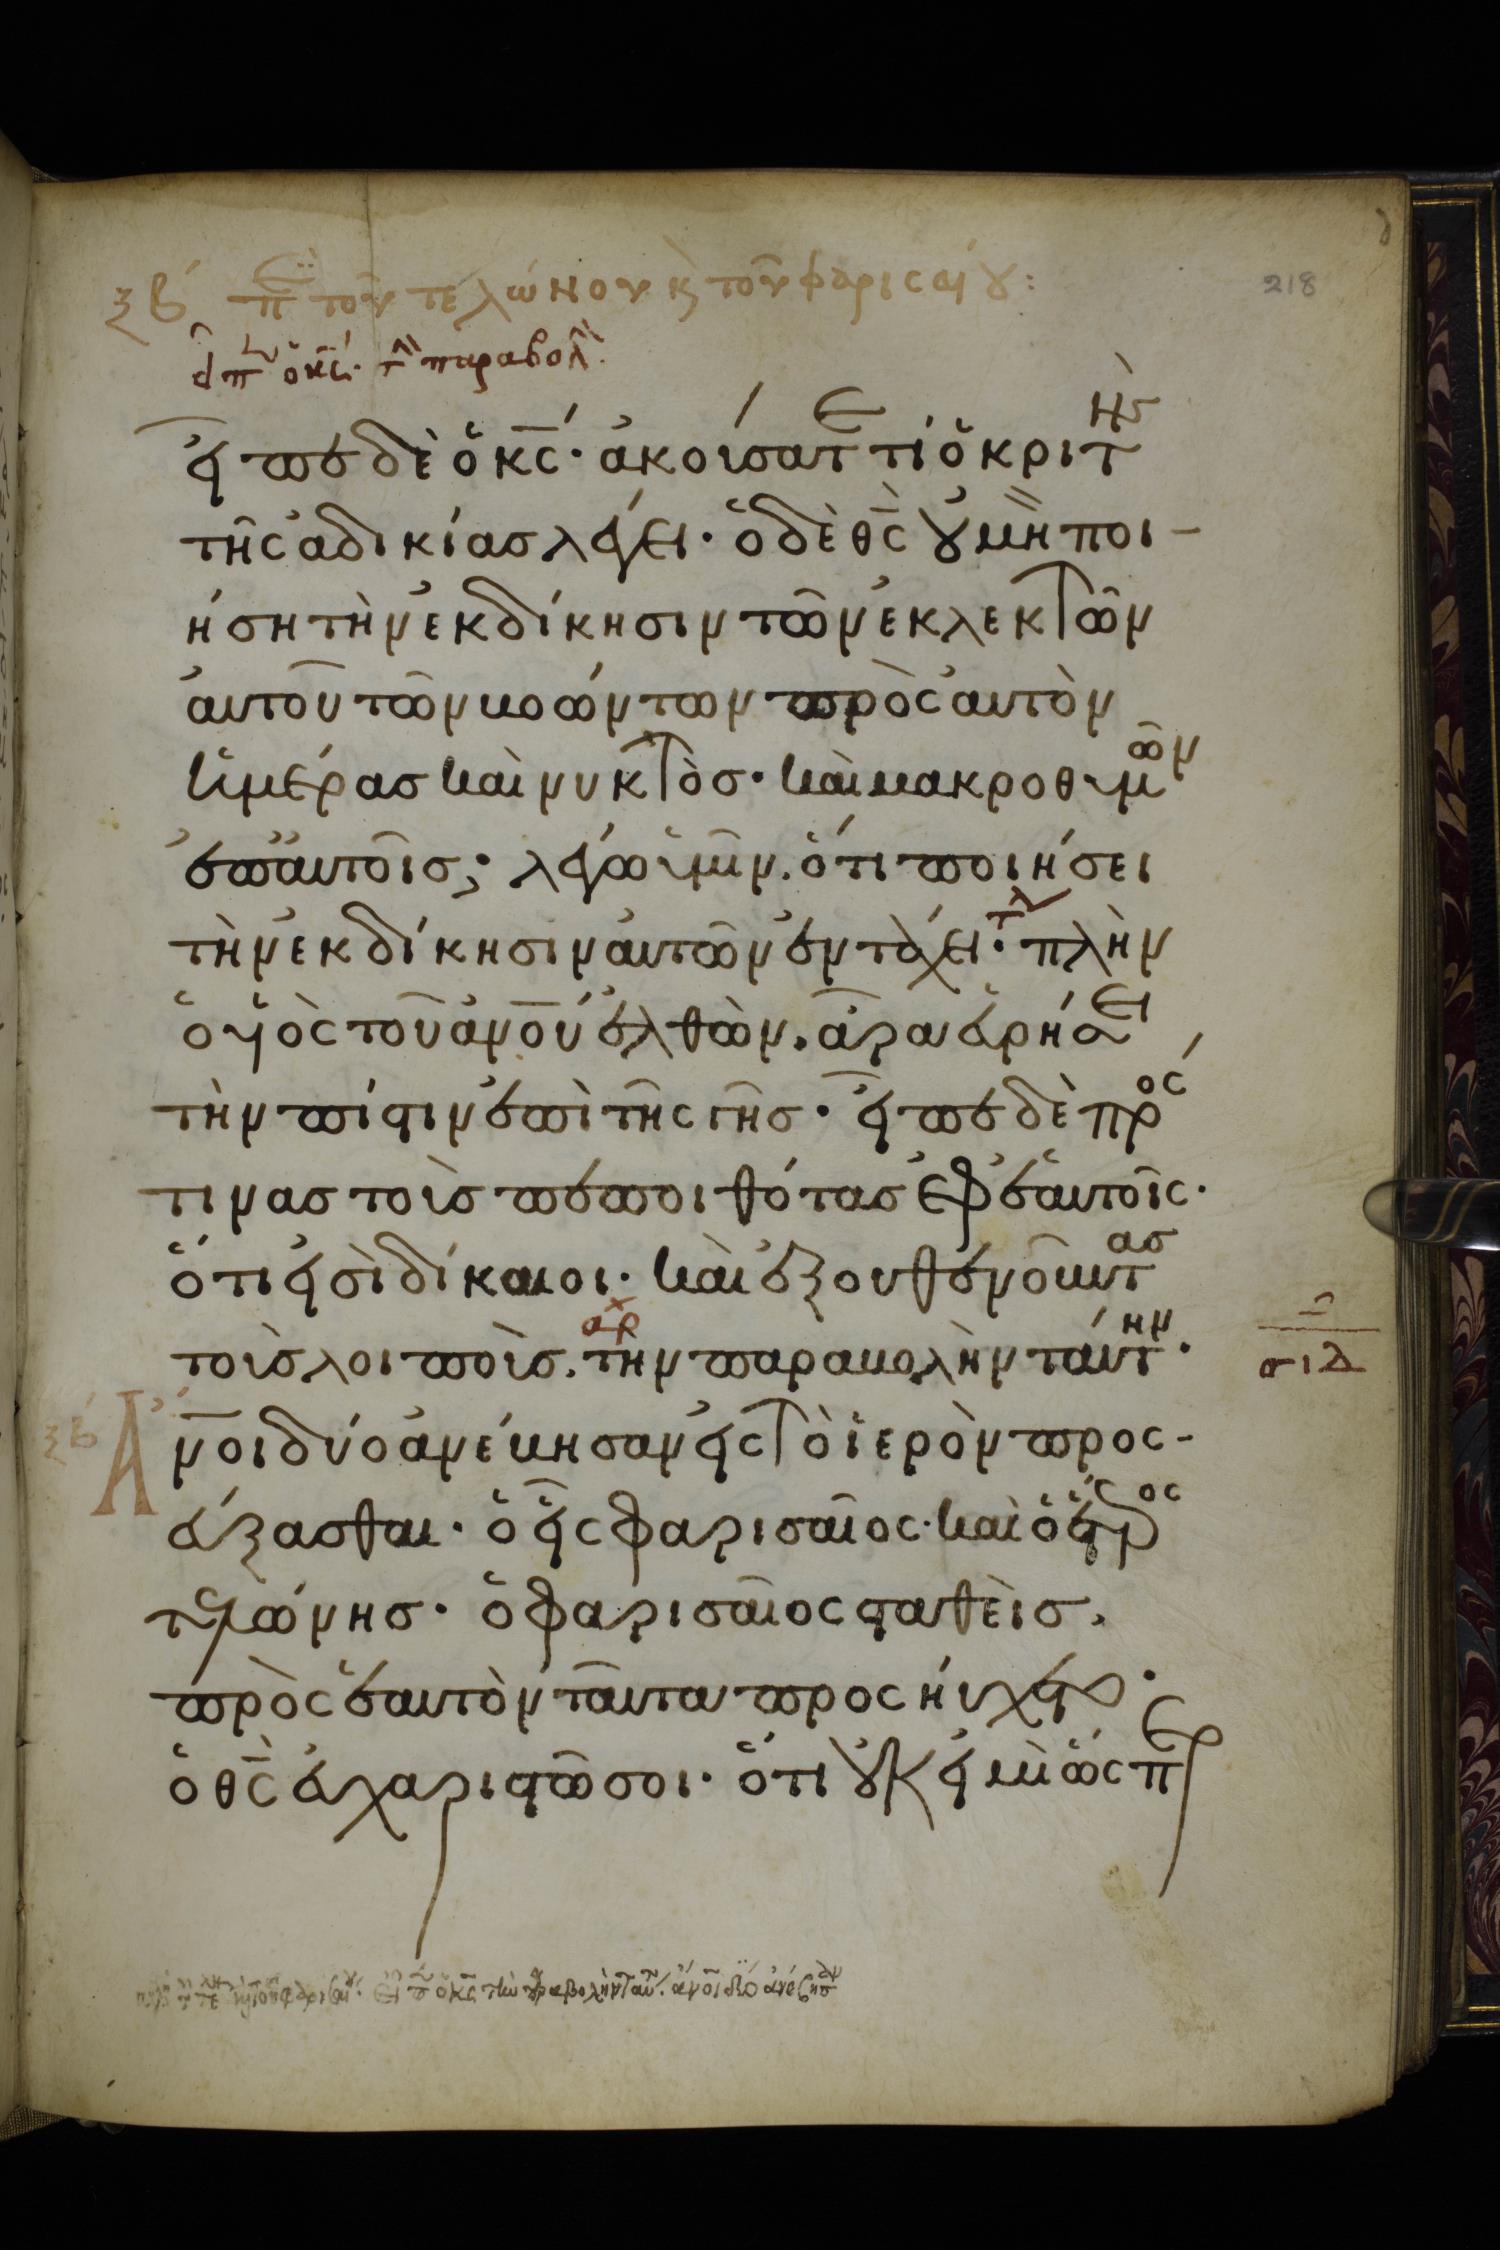 ξβ περὶ τοῦ τελώνου κ τοῦ φαρισαίου:
εἶπεν ὁ κς τὴν παραβολὴν
εἶπε δὲ ὁ κς· ἀκούσατε τί ὁ κριτὴς
τῆς ἀδικίας λέγει· ὁ δὲ θς οὐ μὴ ποι-
ήση τὴν ἐκδίκησιν τῶν ἐκλεκτῶν
αὐτοῦ τῶν βοώντων πρὸς αὐτὸν
ἡμέρας καὶ νυκτὸς· καὶ μακροθυμῶν
ἐπ αὐτοῖς; λέγω ὑμῖν. ὅτι ποιήσει
τὴν ἐκδίκησιν αὐτῶν ἐν τάχει· τλ πλὴν
ὁ υἱὸς τοῦ ανου ἐλθὼν. ἆρα εὑρήσει
τὴν πίστιν ἐπὶ τῆς γῆς· εἶπε δὲ πρός
τινας τοὺς πεποιθότας ἐφ ἑαυτοῖς·
ὅτι εἰσὶ δίκαιοι· καὶ ἐξουθενοῦντας
τοὺς λοιποὺς. αρχ τὴν παραβολὴν ταύτην·
σιδ
ξβ Ἄνοι δύο ἀνέβησαν εἰς τὸ ἱερὸν προς-
εύξασθαι· ὁ εἷς φαρισαῖος· καὶ ὁ ἕτερος
τελώνης· ὁ φαρισαῖος σταθεὶς.
πρὸς ἑαυτὸν ταῦτα προσηύχετο·
ὁ θς εὐχαριστῶ σοι· ὅτι οὐκ εἰμὶ ὥσπερ
218